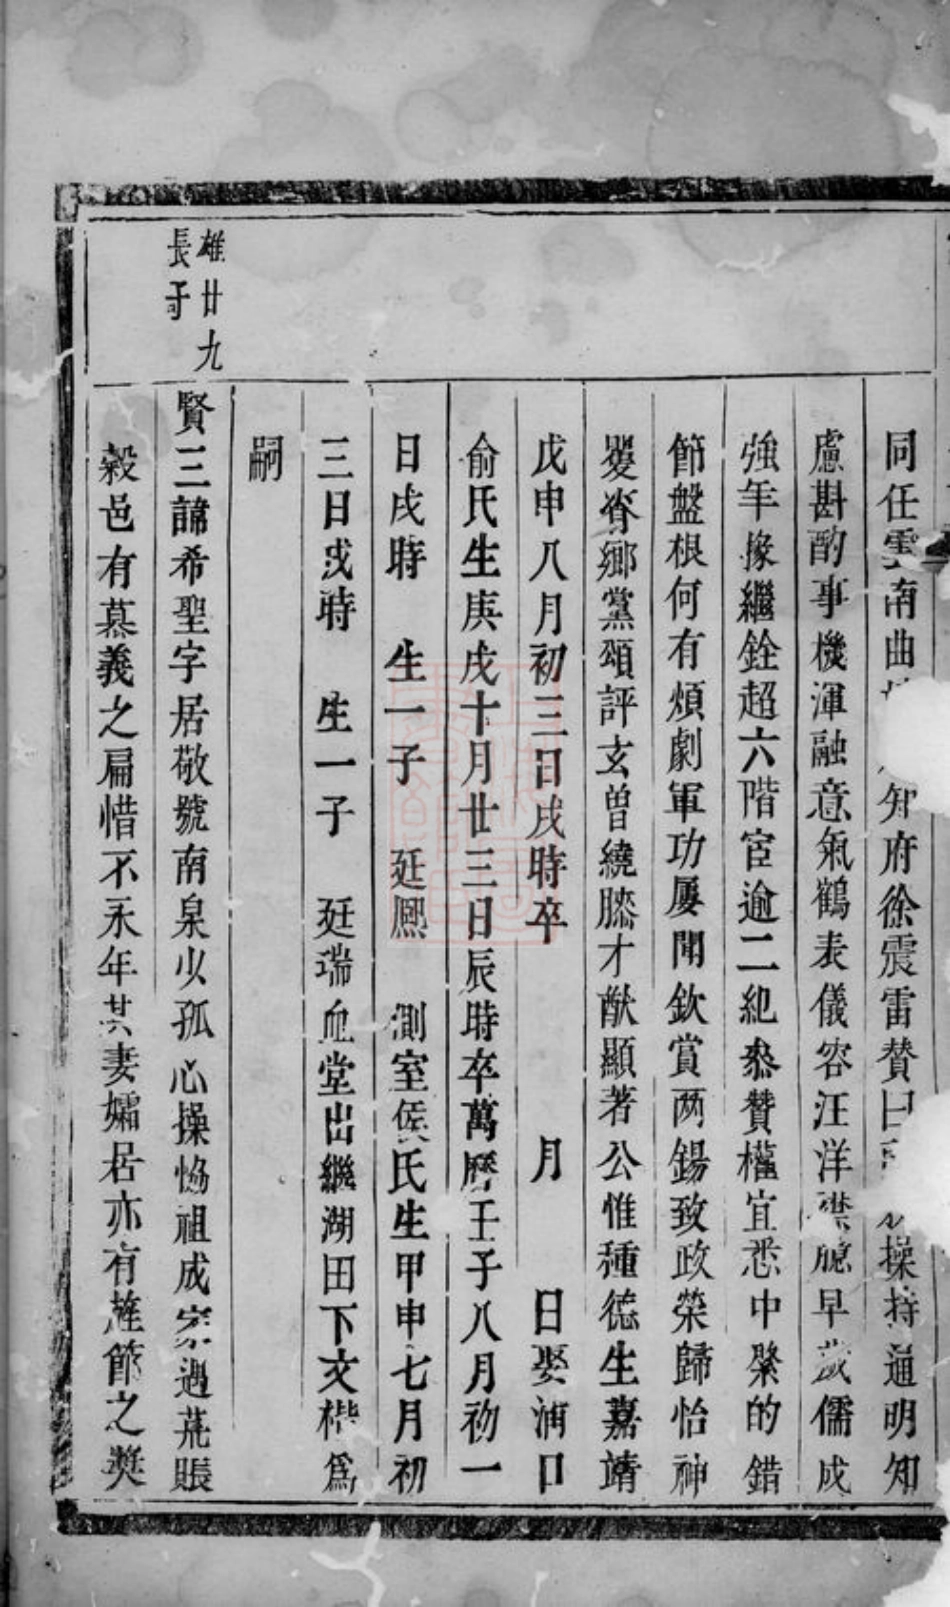 同任雲南曲 知府徐震雷贊曰 操持通明知
慮斟酌事機渾融意氣鶴表儀容汪洋襟臆早歲儒成
強年掾繼銓超六階宦逾二紀叅贊權宜悉中綮的錯
節盤根何有煩劇軍功屢聞欽賞两錫致政榮歸怡神
鄉黨頌評玄曾繞膝才猷顯著公惟種德生嘉靖
戊申八月初三日戌時卒 月 日娶浦口
俞氏生庚戌十月廿三日辰時卒萬曆壬子八月初一
日戌時 生一子 延熈 測室侯氏生甲申七月初
三日戌時 生一子 延瑞血堂出繼湖田下文楷爲
嗣
雄廿九
長子
賢三諱希聖字居敬號南泉少孤心操恊祖成家遇荒賑
穀邑有慕義之扁惜不永年其妻孀居亦有旌節之奬